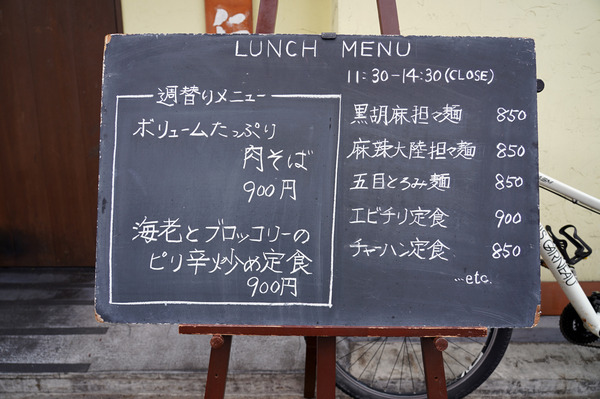 LUNCH MENU
11:30-14:30(CLOSE)
週替りメニュー
ボリュームたっぷり
肉そば
900円
海老とブロッコリーの
ピリ辛炒め定食
900円
黒胡麻担々麺 850
麻辣大陸担々麺 850
五目とろみ麺 850
エビチリ定食 900
チャーハン定食 850
...etc.
GARNEAU